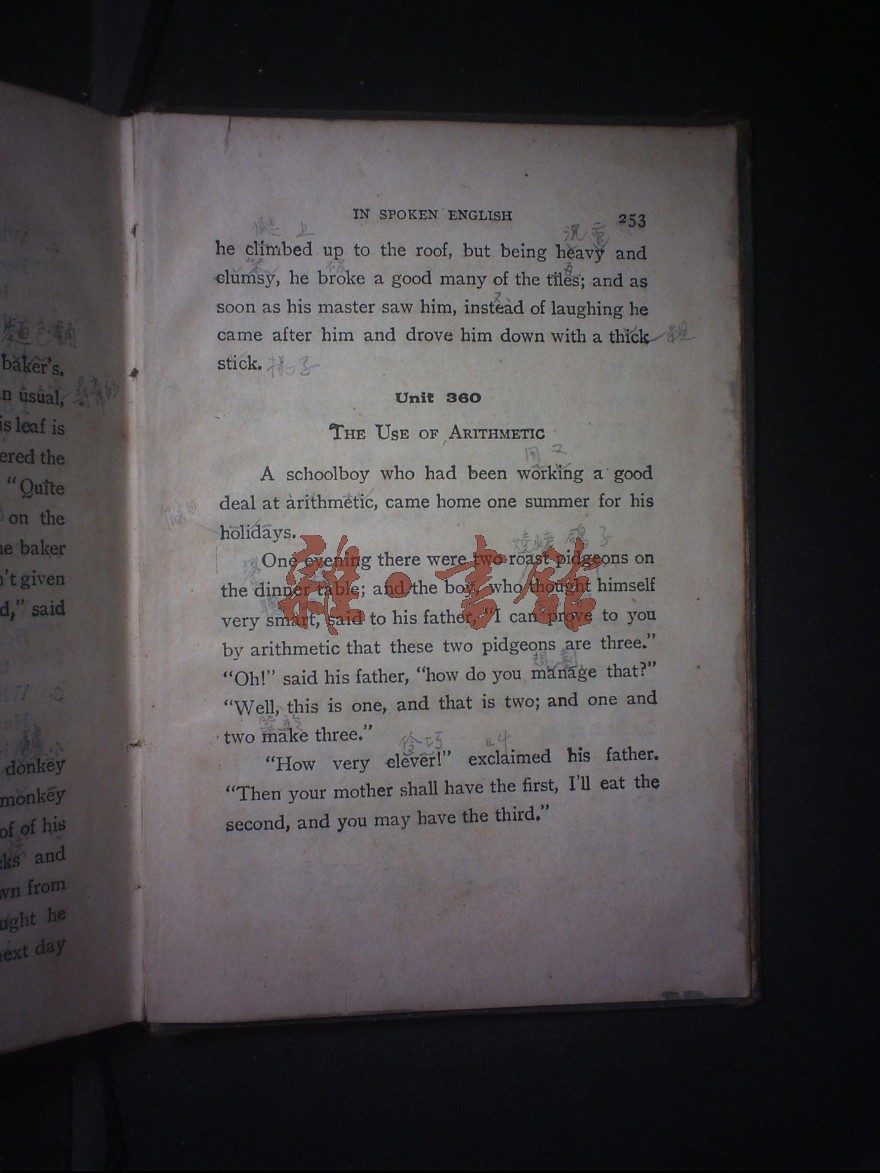 baker's.
n usual,
is leaf is
ered the
"Quite
on the
e baker
't given
d," said
donkey
monkey
of of his
ks and
wn from
ught he
next day
IN SPOKEN ENGLISH 253
爬上 沉重
he climbed up to the roof, but being heavy and
clumsy, he broke a good many of the tiles; and as
soon as his master saw him, instead of laughing he
came after him and drove him down with a thick
stick.
Unit 360
THE USE OF ARITHMETIC
A schoolboy who had been working a good
deal at arithmetic, came home one summer for his
holidays.
One evening there were two roast pidgeons on
the dinner table; and the boy, who thought himself
very smart, said to his father, "I can prove to you
by arithmetic that these two pidgeons are three."
"Oh!" said his father, "how do you manage that?"
"Well, this is one, and that is two; and one and
two make three."
"How very clever!" exclaimed his father.
"Then your mother shall have the first, I'll eat the
second, and you may have the third."
雜·書館